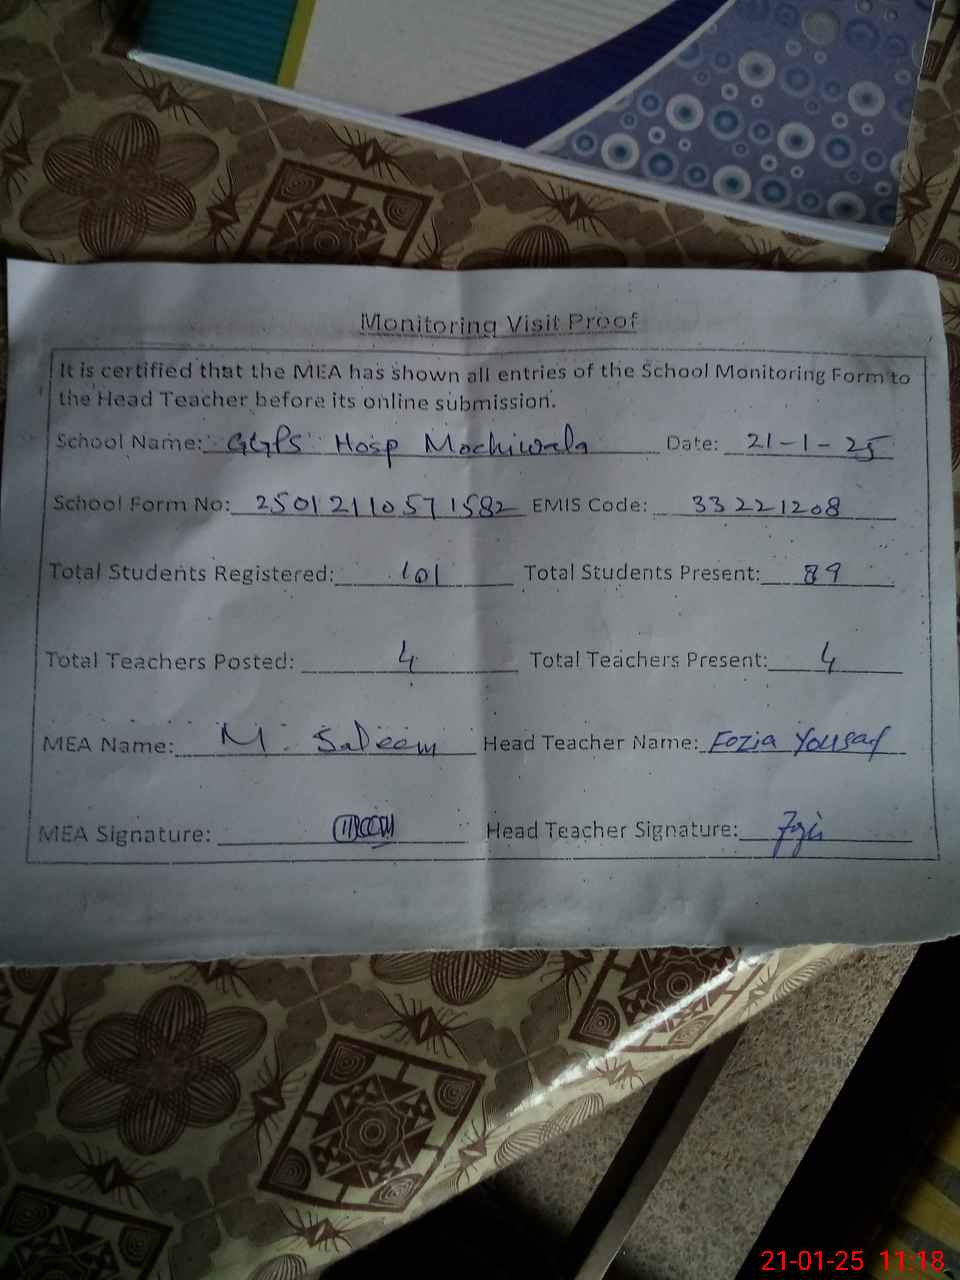 Monitoring Visit Proof
It is certified that the MEA has shown all entries of the School Monitoring Form to
the Head Teacher before its online submission.
School Name: GGPS Hosp Mochiwala Date: 21-1-25
School Form No: 250121105711582 EMIS Code: 33221208
Total Students Registered: 101 Total Students Present: 89
Total Teachers Posted: 4 Total Teachers Present: 4
MEA Name: M. Saleem Head Teacher Name: Fozia Yousaf
MEA Signature: Head Teacher Signature:
21-01-25 11:18